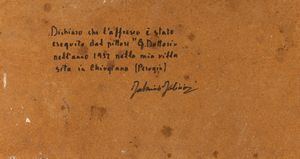 Dichiaro che l'affresco è stato
eseguito dal pittore "G. Dottori"
nell'anno 1952 nella mia villa
sita in Chirgiano (Perugia)